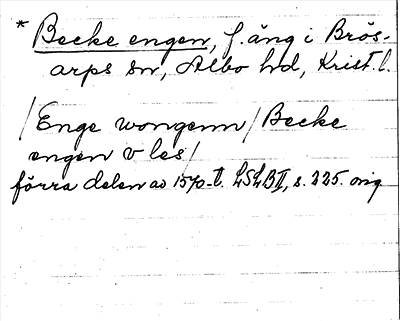 * Becke engen, f. äng i Brös-
arps sn, Albo hd, Krist. l.
/Enge wongenn/Becke
engen v les/
förra delen av 1570-t. LSLBII, s. 225. orig